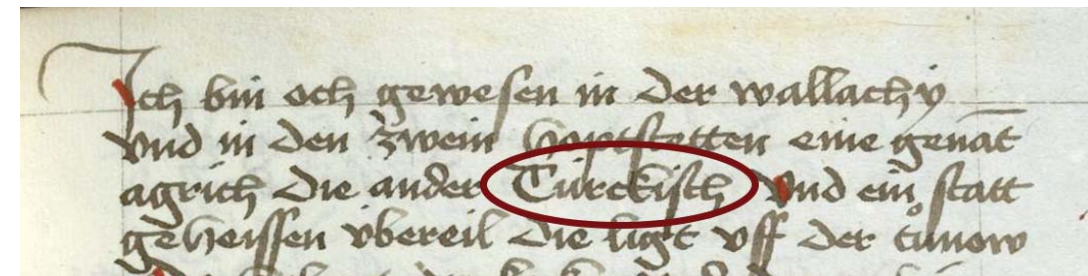 Ich bin och gewesen in der wallachy
vnd in den zwein hoptstetten eine genāt
agrich die ander Türckisch Vnd ein statt
geheissen vbereil die ligt vff der tůnow